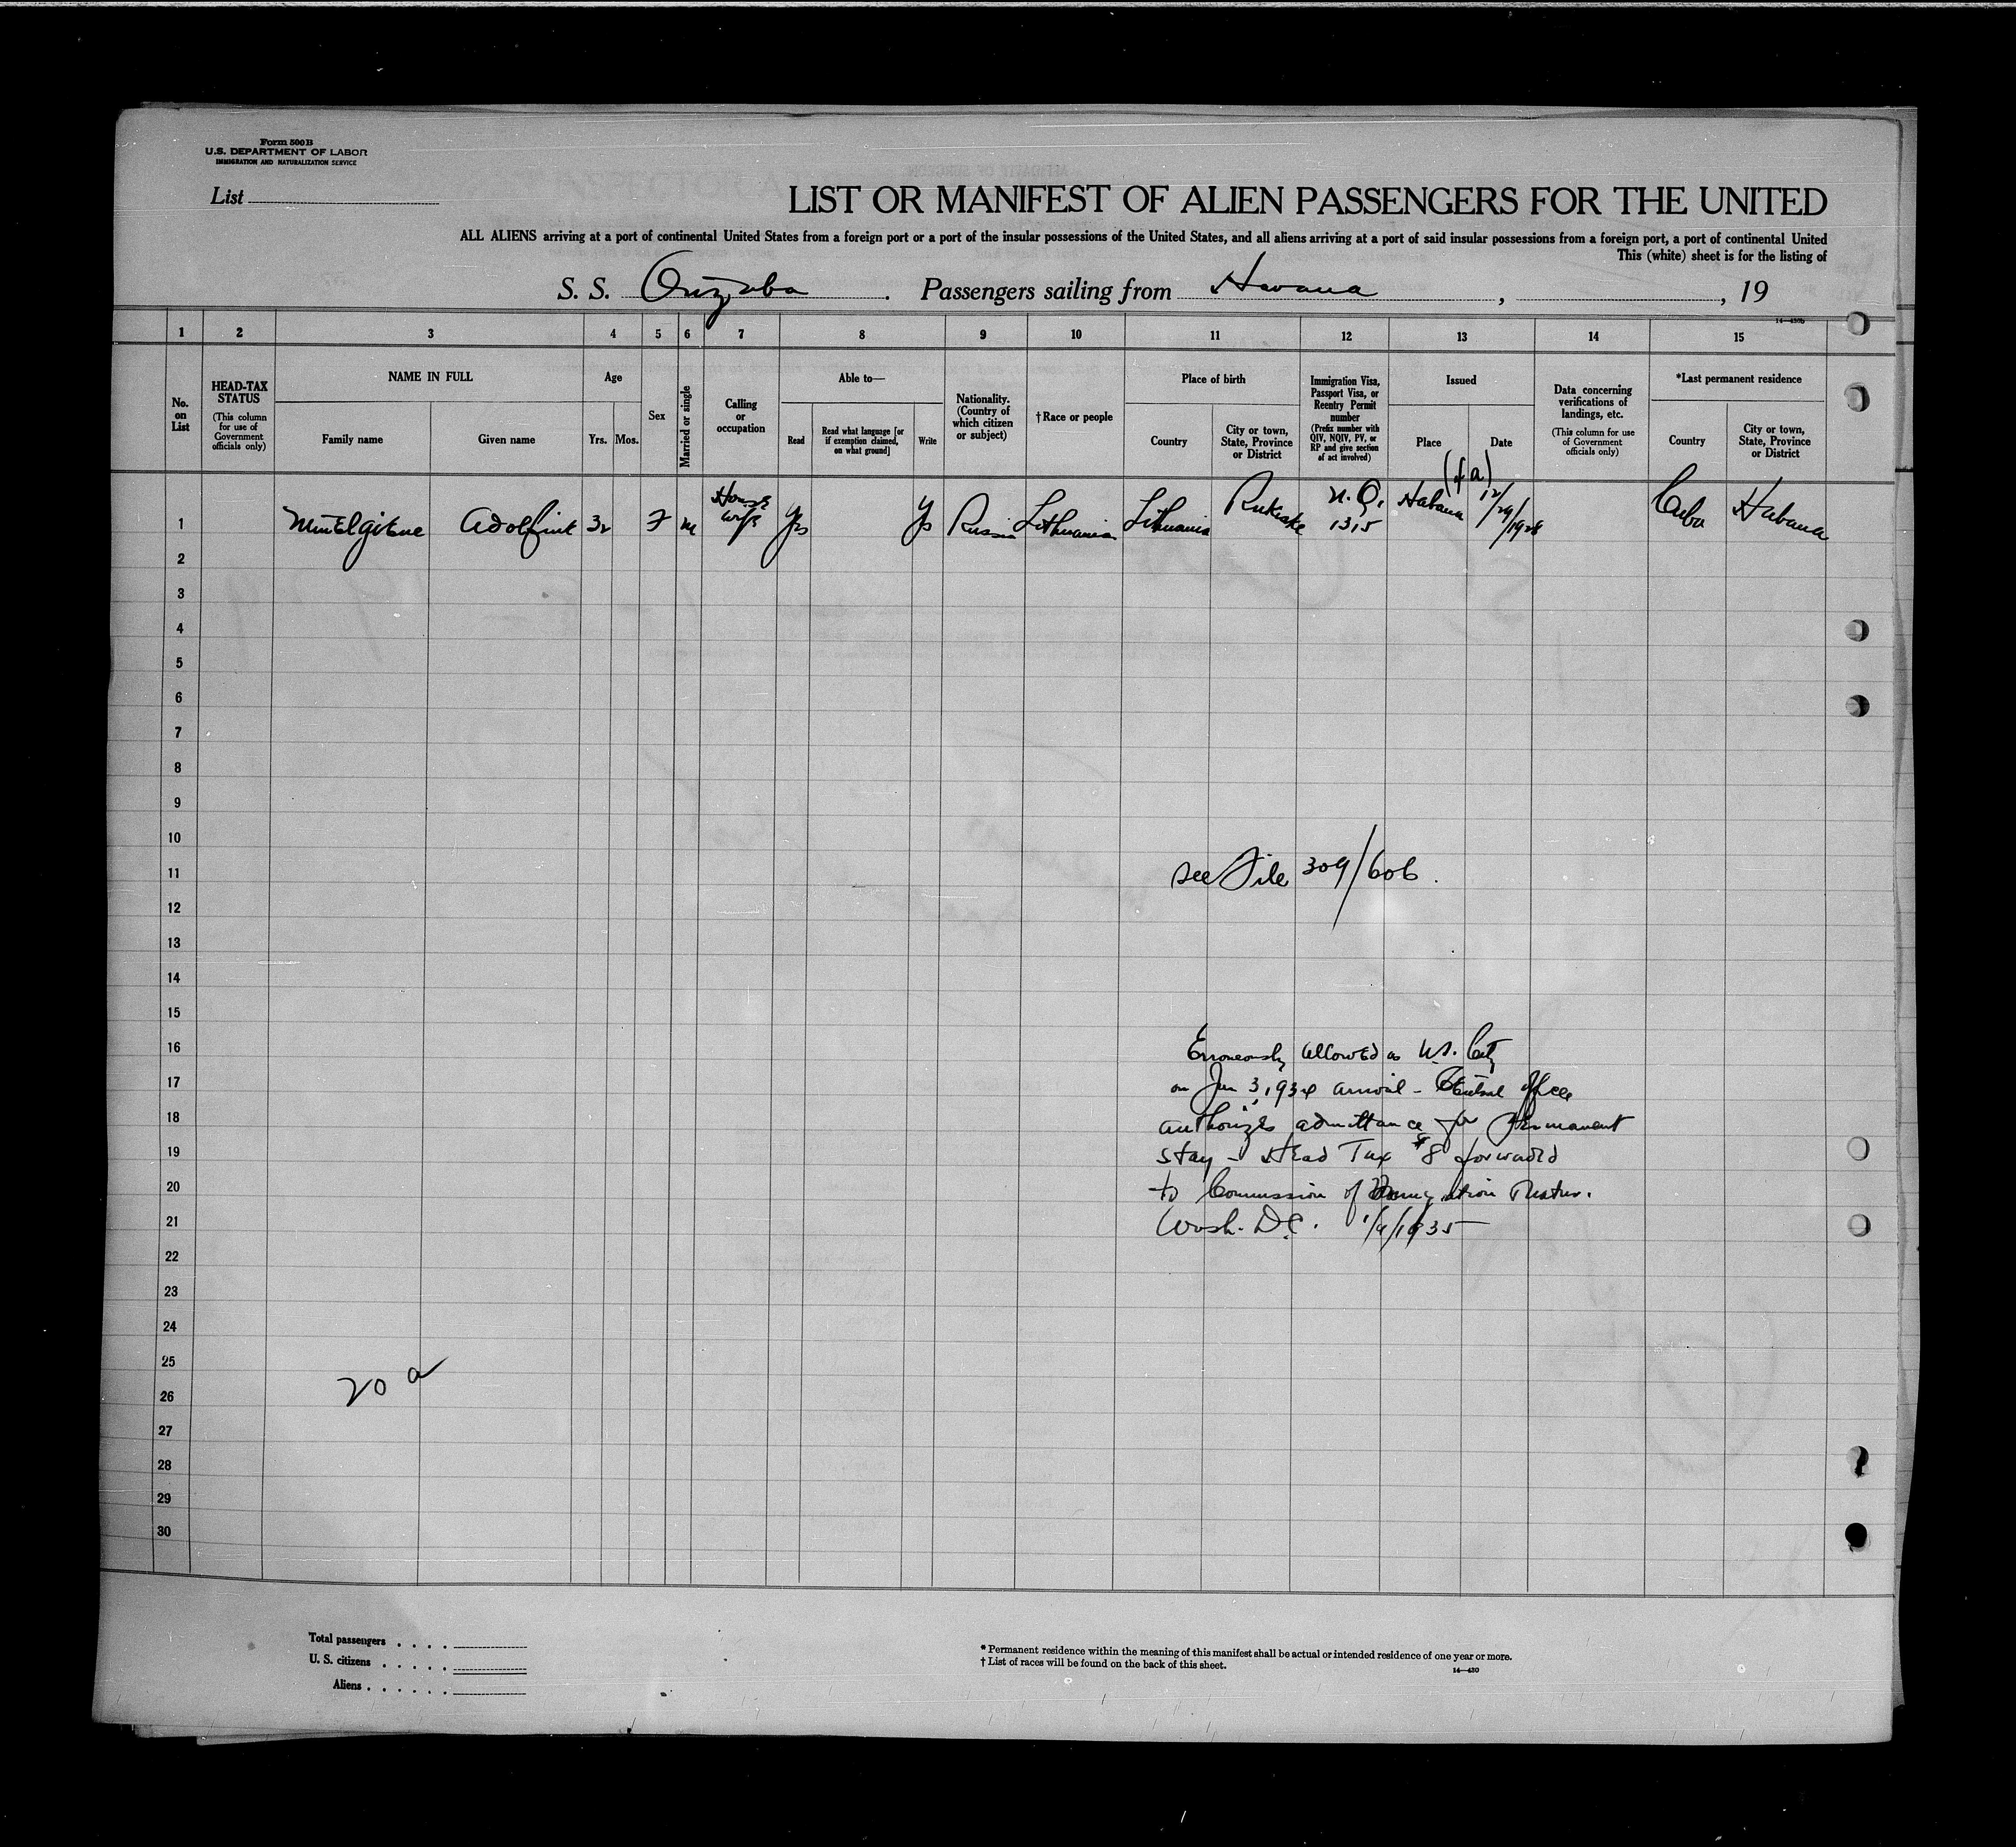 Form 500B
U.S. DEPARTMENT OF LABOR
IMMIGRATION AND NATURALIZATION SERVICE
List
LIST OR MANIFEST OF ALIEN PASSENGERS FOR THE UNITED
ALL ALIENS arriving at a port of continental United States from a foreign port or a port of the insular possessions of the United States, and all aliens arriving at a port of said insular possessions from a foreign port, a port of continental United
This (white) sheet is for the listing of
S. S. Orizaba. Passengers sailing from Havana, , 19
14—430b
1 2 3 4 5 6 7 8 9 10 11 12 13 14 15
No. on List
HEAD-TAX STATUS (This column for use of Government officials only)
NAME IN FULL
Family name
Given name
Age
Yrs. Mos.
Sex
Married or single
Calling or occupation
Able to—
Read
Read what language [or if exemption claimed, on what ground]
Write
Nationality. (Country of which citizen or subject)
†Race or people
Place of birth
Country
City or town, State, Province or District
Immigration Visa, Passport Visa, or Reentry Permit number (Prefix number with QIV, NQIV, PV, or RP and give section of act involved)
Issued
Place
Date
Data concerning verifications of landings, etc. (This column for use of Government officials only)
*Last permanent residence
Country
City or town, State, Province or District
1 Adolfint 32 F M House wife Yes Yes Russia Lithuanian Lithuania Rukiske N.Q. 1315 Habana 12/29/1928 Cuba Habana
2
3
4
5
6
7
8
9
10
11 see File 309/606.
12
13
14
15
16 Erroneously allowed as U.S. Citz
17 on Jan 3, 1934 arrival - Central Office
18 authorizes admittance for permanent
19 stay - Head Tax $8 forwarded
20 to Commission of Immigration Natur.
21 Wash. D.C. 1/9/1935
22
23
24
25
26 20 a
27
28
29
30
Total passengers . . . .
U. S. citizens . . . . .
Aliens . . . . . .
* Permanent residence within the meaning of this manifest shall be actual or intended residence of one year or more.
† List of races will be found on the back of this sheet.
14—430